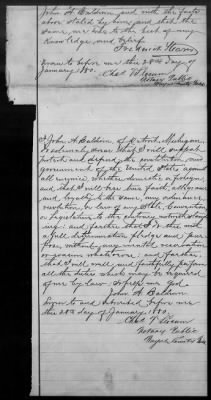 John A. Baldwin and with the facts
above stated by him, and that the
same are true to the best of my
knowledge and belief.
Frederick Stearns
Sworn to before me this 28th day of
January, 1880.
Chas T
Notary Public
Wayne County Mich
I, John A. Baldwin of Detroit, Michigan,
do solemnly swear that I will support
protect and defend the constitution and
government of the United States against
all enemies, whether domestic or foreign
and that I will bear true faith, allegiance
and loyalty to the same, any ordinance,
resolution, or law of any State, Convention
or Legislature to the contrary notwithstand-
ing: and further that I do this with
a full determination, pledge and pur-
pose, without any mental reservation
or evasion whatsoever: and further,
that I will well and faithfully perform
all the duties which may be required
of me by law: So help me God.
John A Baldwin
Sworn to and subscribed before me
the 28th day of January, 1880.
Chas T
Notary Public
Wayne County Mich